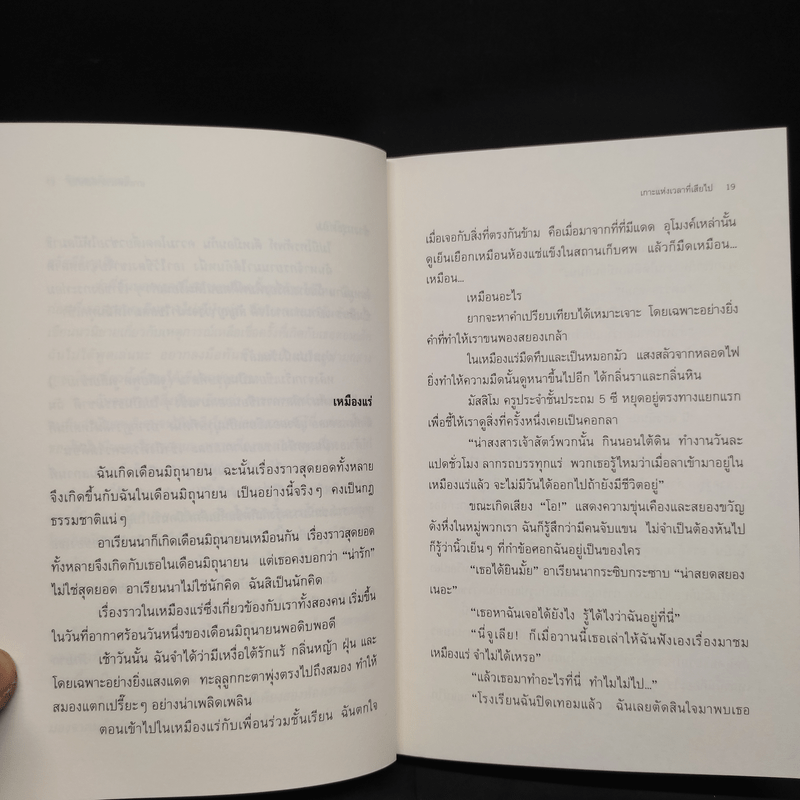 เหมืองแร่
ฉันเกิดเดือนมิถุนายน ฉะนั้นเรื่องราวสุดยอดทั้งหลาย
จึงเกิดขึ้นกับฉันในเดือนมิถุนายน เป็นอย่างนี้จริงๆ คงเป็นกฎ
ธรรมชาติแน่ๆ
อาเรียนนาก็เกิดเดือนมิถุนายนเหมือนกัน เรื่องราวสุดยอด
ทั้งหลายจึงเกิดกับเธอในเดือนมิถุนายน แต่เธอคงบอกว่า “น่ารัก”
ไม่ใช่สุดยอด อาเรียนนาไม่ใช่นักคิด ฉันสิเป็นนักคิด
เรื่องราวในเหมืองแร่ซึ่งเกี่ยวข้องกับเราทั้งสองคน เริ่มขึ้น
ในวันที่อากาศร้อนวันหนึ่งของเดือนมิถุนายนพอดิบพอดี
เช้าวันนั้น ฉันจำได้ว่ามีเหงื่อใต้รักแร้ กลิ่นหญ้า ฝุ่น และ
โดยเฉพาะอย่างยิ่งแสงแดด ทะลุลูกกะตาพุ่งตรงไปถึงสมอง ทำให้
สมองแตกเปรี๊ยะๆ อย่างน่าเพลิดเพลิน
ตอนเข้าไปในเหมืองแร่กับเพื่อนร่วมชั้นเรียน ฉันตกใจ
เกาะแห่งเวลาที่เสียไป 19
เมื่อเจอกับสิ่งที่ตรงกันข้าม คือเมื่อมาจากที่ที่มีแดด อุโมงค์เหล่านั้น
ดูเย็นเยือกเหมือนห้องแช่แข็งในสถานเก็บศพ แล้วก็มืดเหมือน...
เหมือน...
เหมือนอะไร
ยากจะหาคำเปรียบเทียบได้เหมาะเจาะ โดยเฉพาะอย่างยิ่ง
คำที่ทำให้เราขนพองสยองเกล้า
ในเหมืองแร่มืดทึบและเป็นหมอกมัว แสงสลัวจากหลอดไฟ
ยิ่งทำให้ความมืดนั้นดูหนาขึ้นไปอีก ได้กลิ่นราและกลิ่นหิน
มัสสิโม ครูประจำชั้นประถม 5 ซี หยุดอยู่ตรงทางแยกแรก
เพื่อชี้ให้เราดูสิ่งที่ครั้งหนึ่งเคยเป็นคอกลา
“น่าสงสารเจ้าสัตว์พวกนั้น กินนอนใต้ดิน ทำงานวันละ
แปดชั่วโมง ลากรถบรรทุกแร่ พวกเธอรู้ไหมว่าเมื่อลาเข้ามาอยู่ใน
เหมืองแร่แล้ว จะไม่มีวันได้ออกไปถ้ายังมีชีวิตอยู่”
ขณะเกิดเสียง “โอ!” แสดงความขุ่นเคืองและสยองขวัญ
ดังหึ่งในหมู่พวกเรา ฉันก็รู้สึกว่ามีคนจับแขน ไม่จำเป็นต้องหันไป
ก็รู้ว่านิ้วเย็นๆ ที่กำข้อศอกฉันอยู่เป็นของใคร
“เธอได้ยินมั้ย” อาเรียนนากระซิบกระซาบ “น่าสยดสยอง
เนอะ”
“เธอหาฉันเจอได้ยังไง รู้ได้ไงว่าฉันอยู่ที่นี่”
“นี่จูเลีย! ก็เมื่อวานนี้เธอเล่าให้ฉันฟังเองเรื่องมาชม
เหมืองแร่ จำไม่ได้เหรอ”
“แล้วเธอมาทำอะไรที่นี่ ทำไมไม่ไป...”
“โรงเรียนฉันปิดเทอมแล้ว ฉันเลยตัดสินใจมาพบเธอ